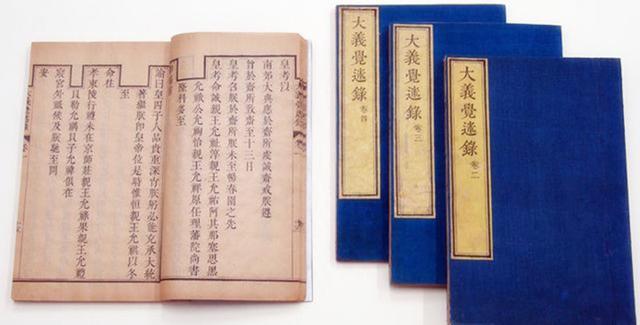 皇考以
南郊大典應於齋所虔誠齋戒朕遵
旨於齋所致齋至十三日
皇考召朕於齋所朕未至暢春園之先
皇考命誠親王允祉淳親王允祐阿其那塞思黑
允䄉公允祹怡親王允祥原任理藩院尚書
隆科多至
諭曰皇四子人品貴重深肖朕躬必能克承大統
著繼朕即皇帝位是時惟恒親王允祺以冬
至
命往
孝東陵行禮未在京師莊親王允祿果親王允禮
貝勒允禑貝子允禕俱在
寢宮外祗候及朕馳至問
安
大義覺迷錄 卷首
大義覺迷錄 卷三
大義覺迷錄 卷二